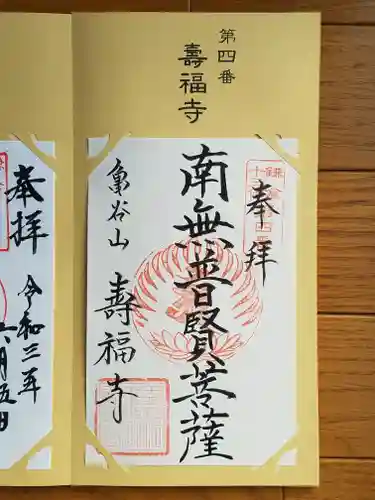 第四番
壽福寺
奉拝
南無普賢菩薩
亀谷山
壽福寺
奉拝
令和三年
六月五日